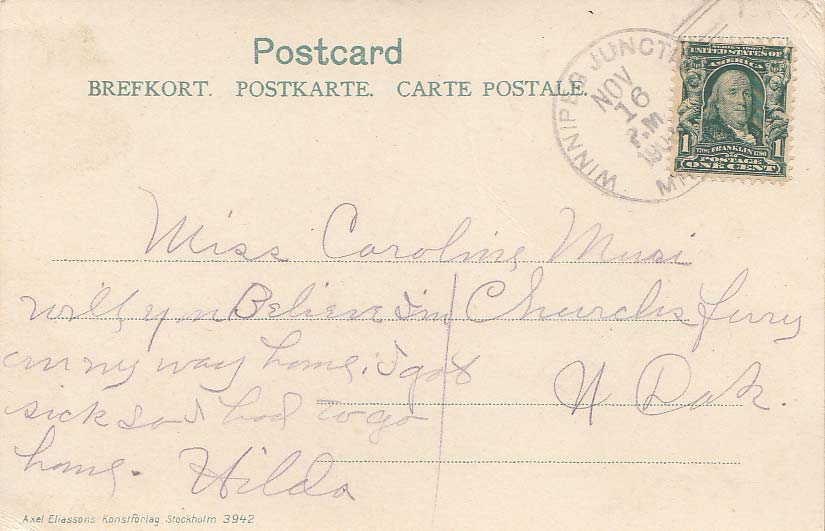 Postcard
BREFKORT. POSTKARTE. CARTE POSTALE.
WINNIPEG JUNCT
NOV
16
2 M
SERIES 1902
UNITED STATES OF
AMERICA
1 FRANKLIN 1
POSTAGE
ONE CENT
Miss Caroline Musi
will you Believe im
on my way home. I got
sick so I had to go
home. Hilda
Churchs ferry
N Dak.
Axel Eliassons Konstförlag, Stockholm 3942